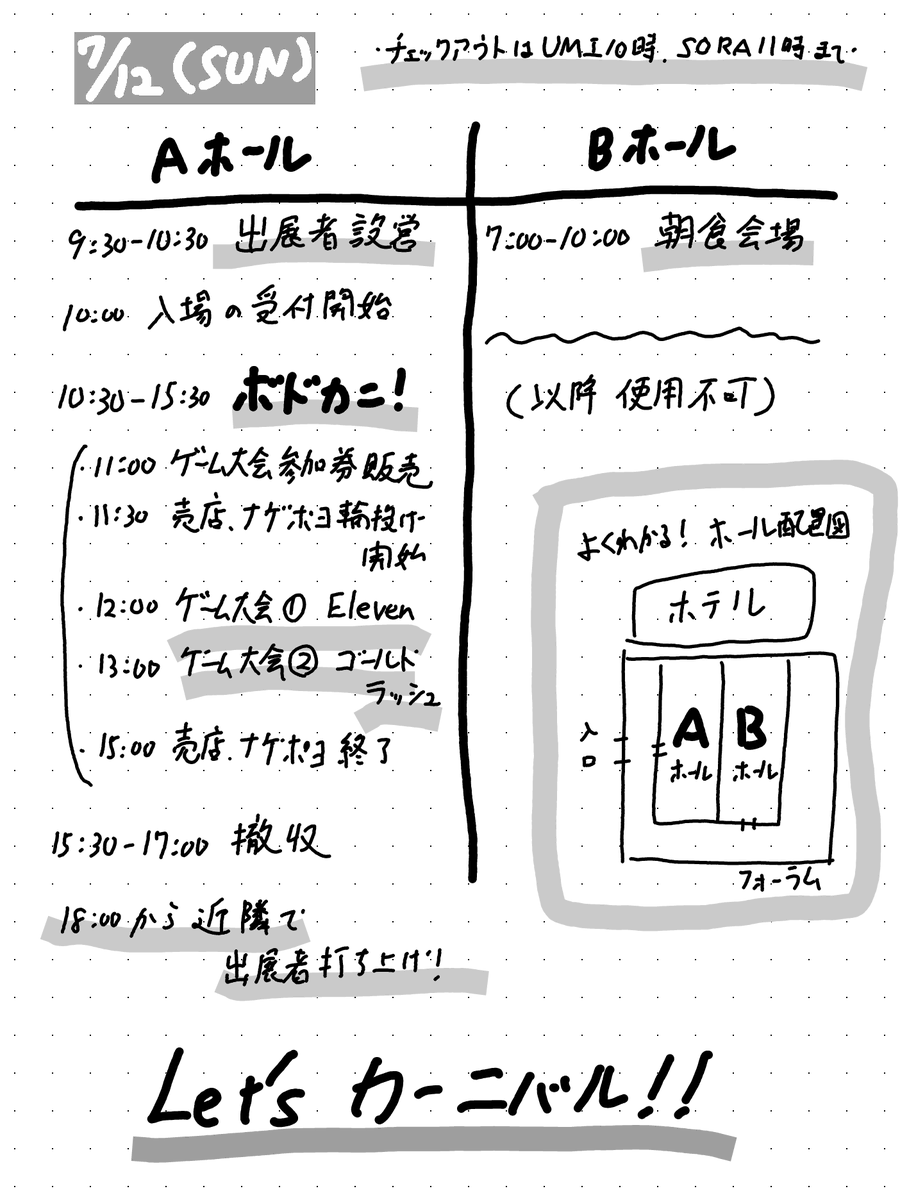 7/12(SUN)
・チェックアウトはUMI10時、SORA11時まで・
Aホール
9:30-10:30 出展者設営
10:00 入場の受付開始
10:30-15:30 ボドカニ!
・11:00 ゲーム大会参加券販売
・11:30 売店、ナゲポヨ輪投げ
開始
・12:00 ゲーム大会① Eleven
・13:00 ゲーム大会② ゴールド
ラッシュ
・15:00 売店、ナゲポヨ終了
15:30-17:00 撤収
18:00から近隣で
出展者打ち上げ!
Bホール
7:00-10:00 朝食会場
(以降 使用不可)
よくわかる! ホール配置図
ホテル
A
ホール
B
ホール
入口
フォーラム
Let's カーニバル!!